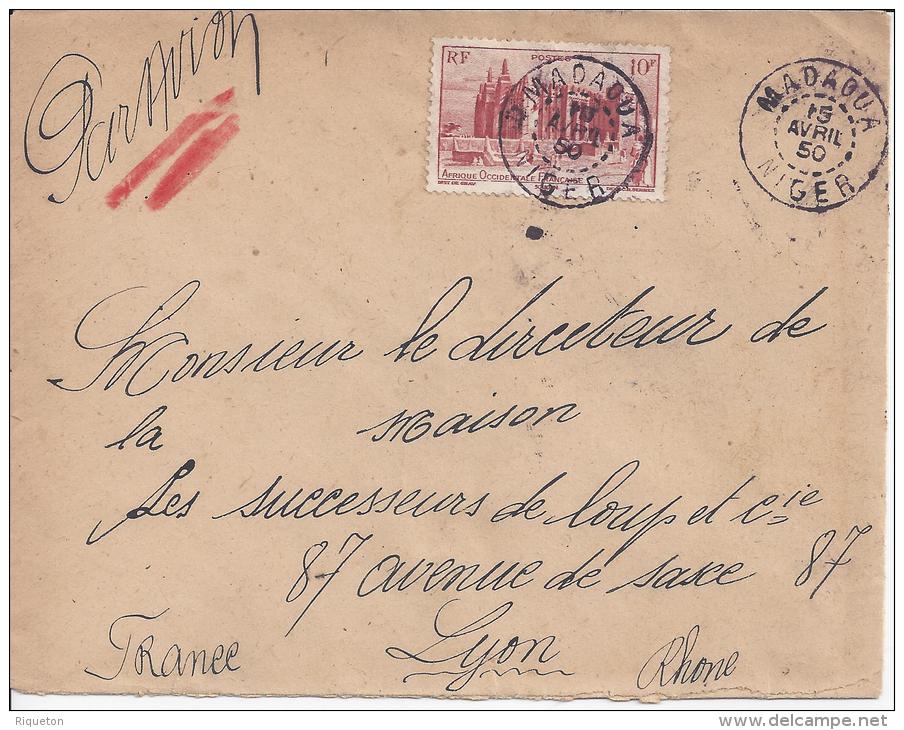 Par avion
RF POSTES 10F
AFRIQUE OCCIDENTALE FRANÇAISE
MADAOUA
15
AVRIL
50
NIGER
MADAOUA
15
AVRIL
50
NIGER
Monsieur le dirceteur de
la maison
Les successeurs de loup et Cie
87 avenue de saxe 87
France Lyon Rhone
Riqueton
delcampe.net